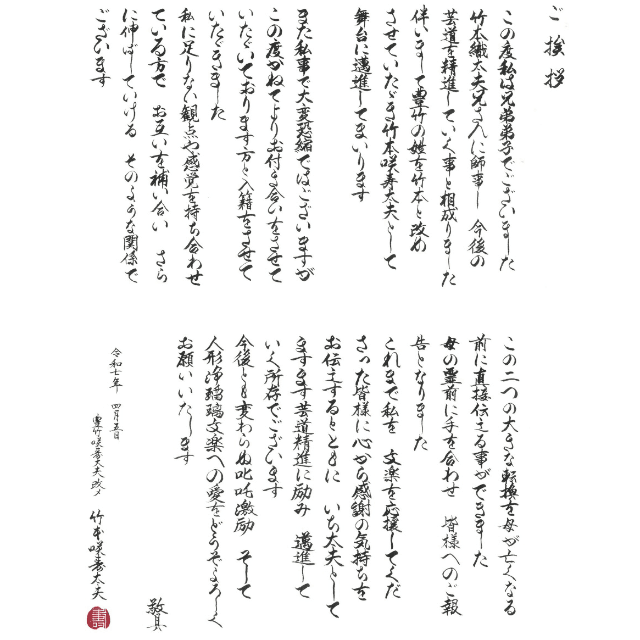 ご挨拶
この度私は兄弟弟子でございました
竹本織太夫兄さんに師事し 今後の
芸道を精進していく事と相成りました
伴いまして豊竹の姓を竹本と改め
させていただき竹本咲寿太夫として
舞台に邁進してまいります
また私事で大変恐縮ではございますが
この度かねてよりお付き合いをさせて
いただいております方と入籍をさせて
いただきました
私に足りない観点や感覚を持ち合わせ
ている方で お互いを補い合い さら
に伸ばしていける そのような関係で
ございます
この二つの大きな転換を母が亡くなる
前に直接伝える事ができました
母の霊前に手を合わせ 皆様へのご報
告となりました
これまで私を 文楽を応援してくだ
さった皆様に心から感謝の気持ちを
お伝えするとともに いち太夫として
ますます芸道精進に励み 邁進して
いく所存でございます
今後とも変わらぬ叱咤激励 そして
人形浄瑠璃文楽への愛をどうぞよろしく
お願いいたします
敬具
令和七年 四月五日
豊竹咲寿太夫改メ 竹本咲寿太夫